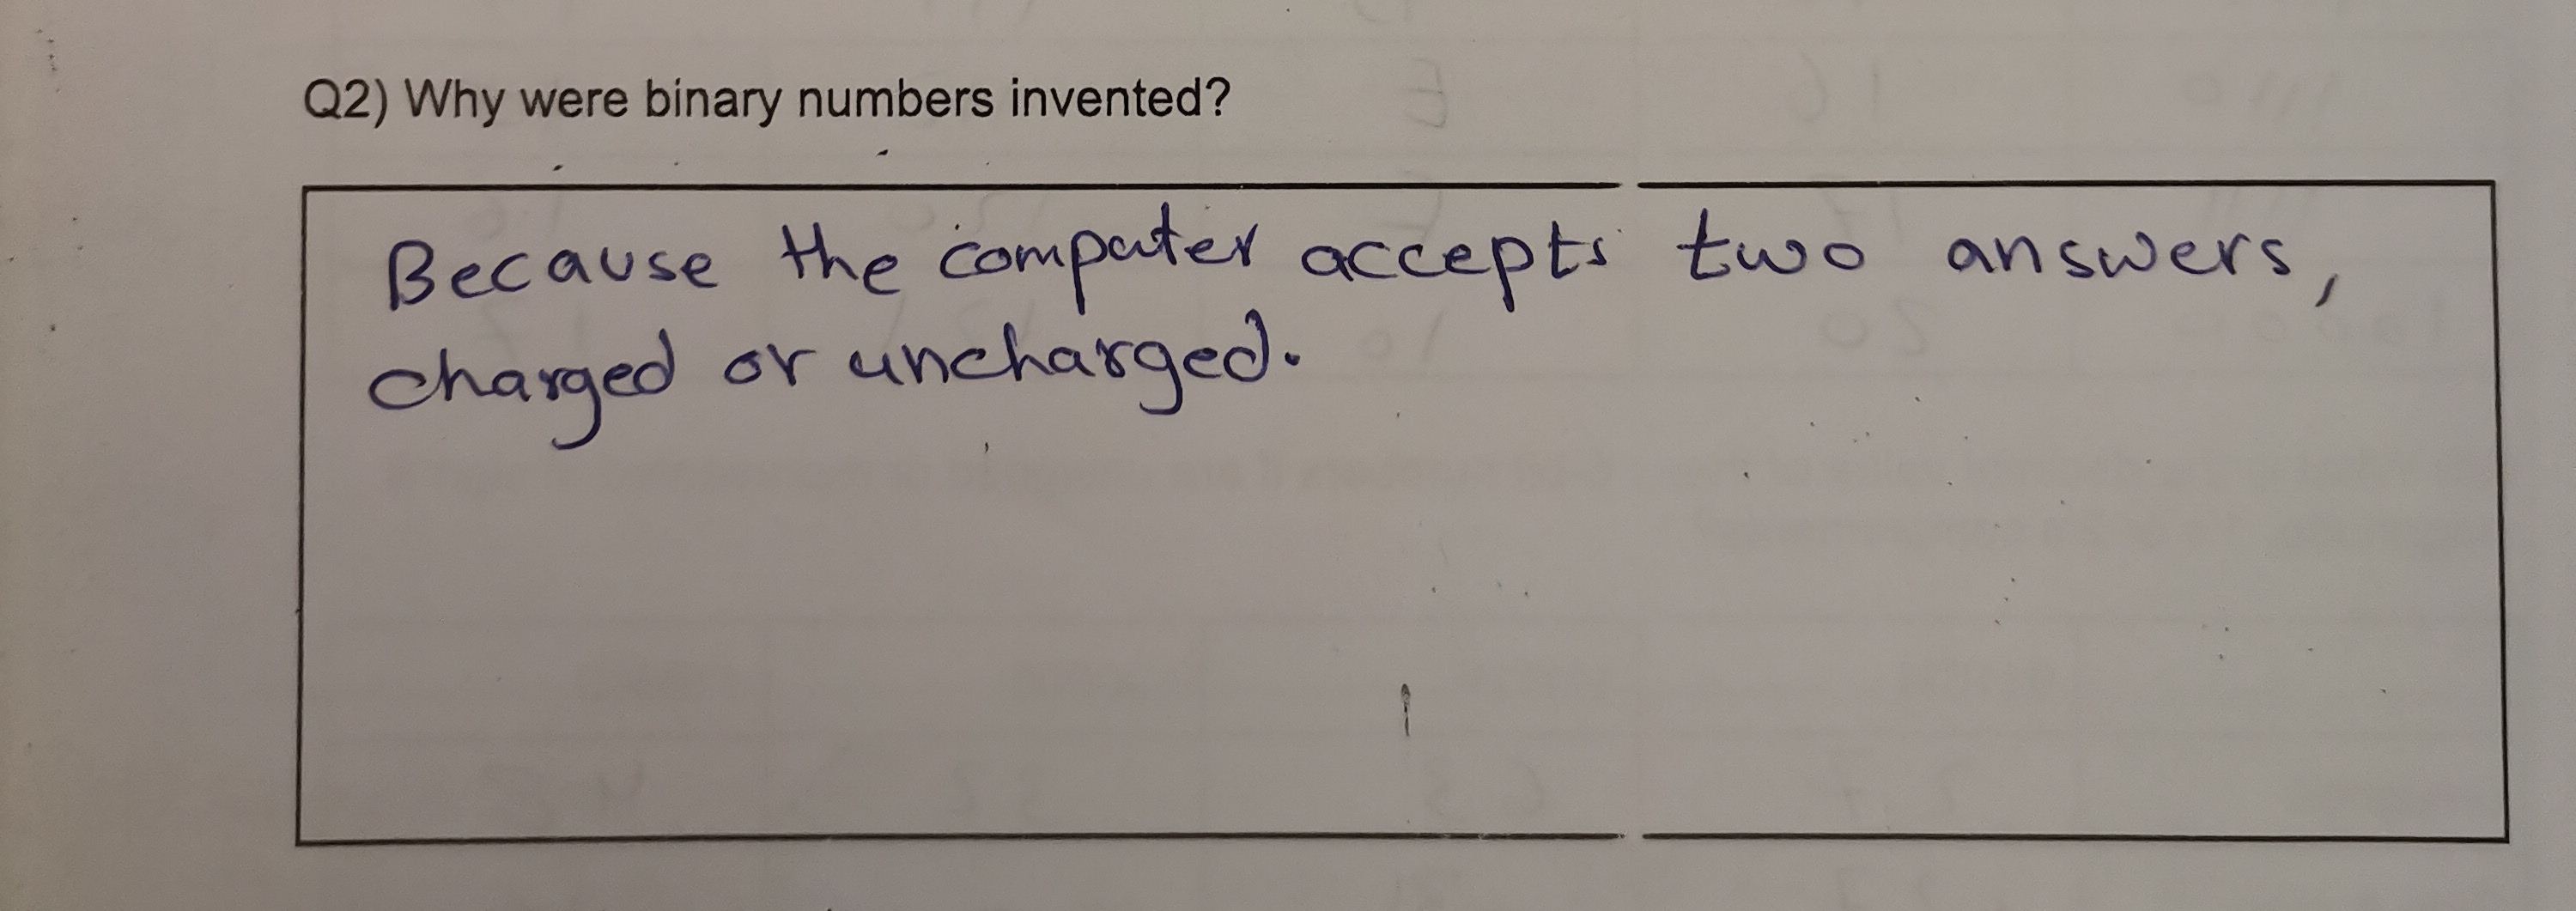 Q2) Why were binary numbers invented?
Because the computer accepts two answers,
charged or uncharged.